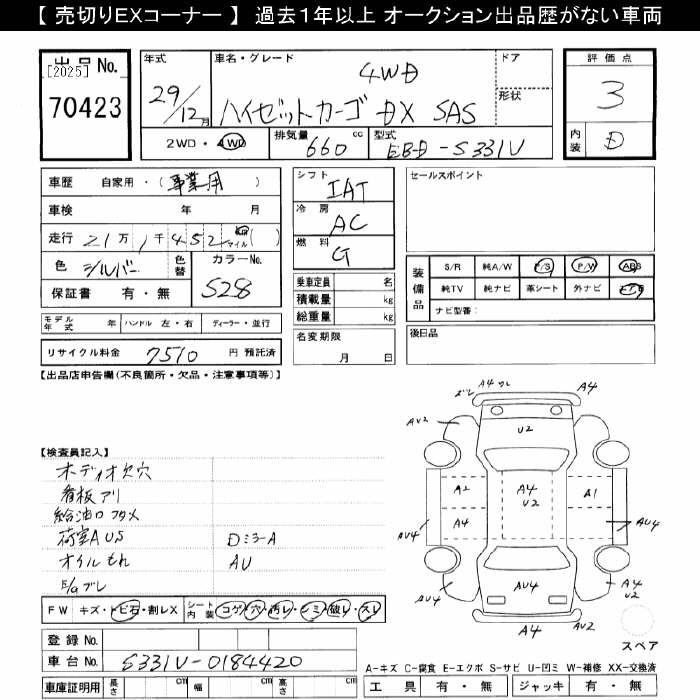 【 売切りEXコーナー 】 過去１年以上 オークション出品歴がない車両
出品 No.
[2025]
70423
年式
29/12月
車名・グレード
4WD
ハイゼットカーゴ DX SAS
ドア
形状
2WD・4WD
排気量 660 cc
型式 EBD-S331V
評価点
3
内装 D
車歴 自家用・(事業用)
車検 年 月
走行 21万1千452 km マイル( )
色 シルバー 色替
カラーNo.
S28
保証書 有・無
シフト
IAT
冷房
AC
燃料
G
乗車定員 名
積載量 kg
総重量 kg
セールスポイント
装備品
S/R 純A/W P/S P/W ABS
純TV 純ナビ 革シート 外ナビ
ナビ型番:
モデル年式 年 ハンドル 左・右 ディーラー・並行
リサイクル料金 7510 円 預託済
名変期限
月 日
後日品
【出品店申告欄(不良箇所・欠品・注意事項等)】
【検査員記入】
オーディオ欠穴
看板アリ
給油口フタメ
荷室AUS
DミラーA
オイルもれ
AU
E/gブレ
FW キズ・トビ石・割レX
シート内装 コゲ・穴・汚レ・シミ・破レ・スレ
登録 No.
車台 No. S331V-0184420
車庫証明用 長さ cm 幅 cm 高さ cm
ズレ A4 ワレ
A4
AU2
U2
A2
A4
U2
A1
A4
AU4
AU4
AU4
AU4
A4
U2
A4
AU2
スペア
A-キズ C-腐食 E-エクボ S-サビ U-凹ミ W-補修 XX-交換済
工具 有・無 ジャッキ 有・無